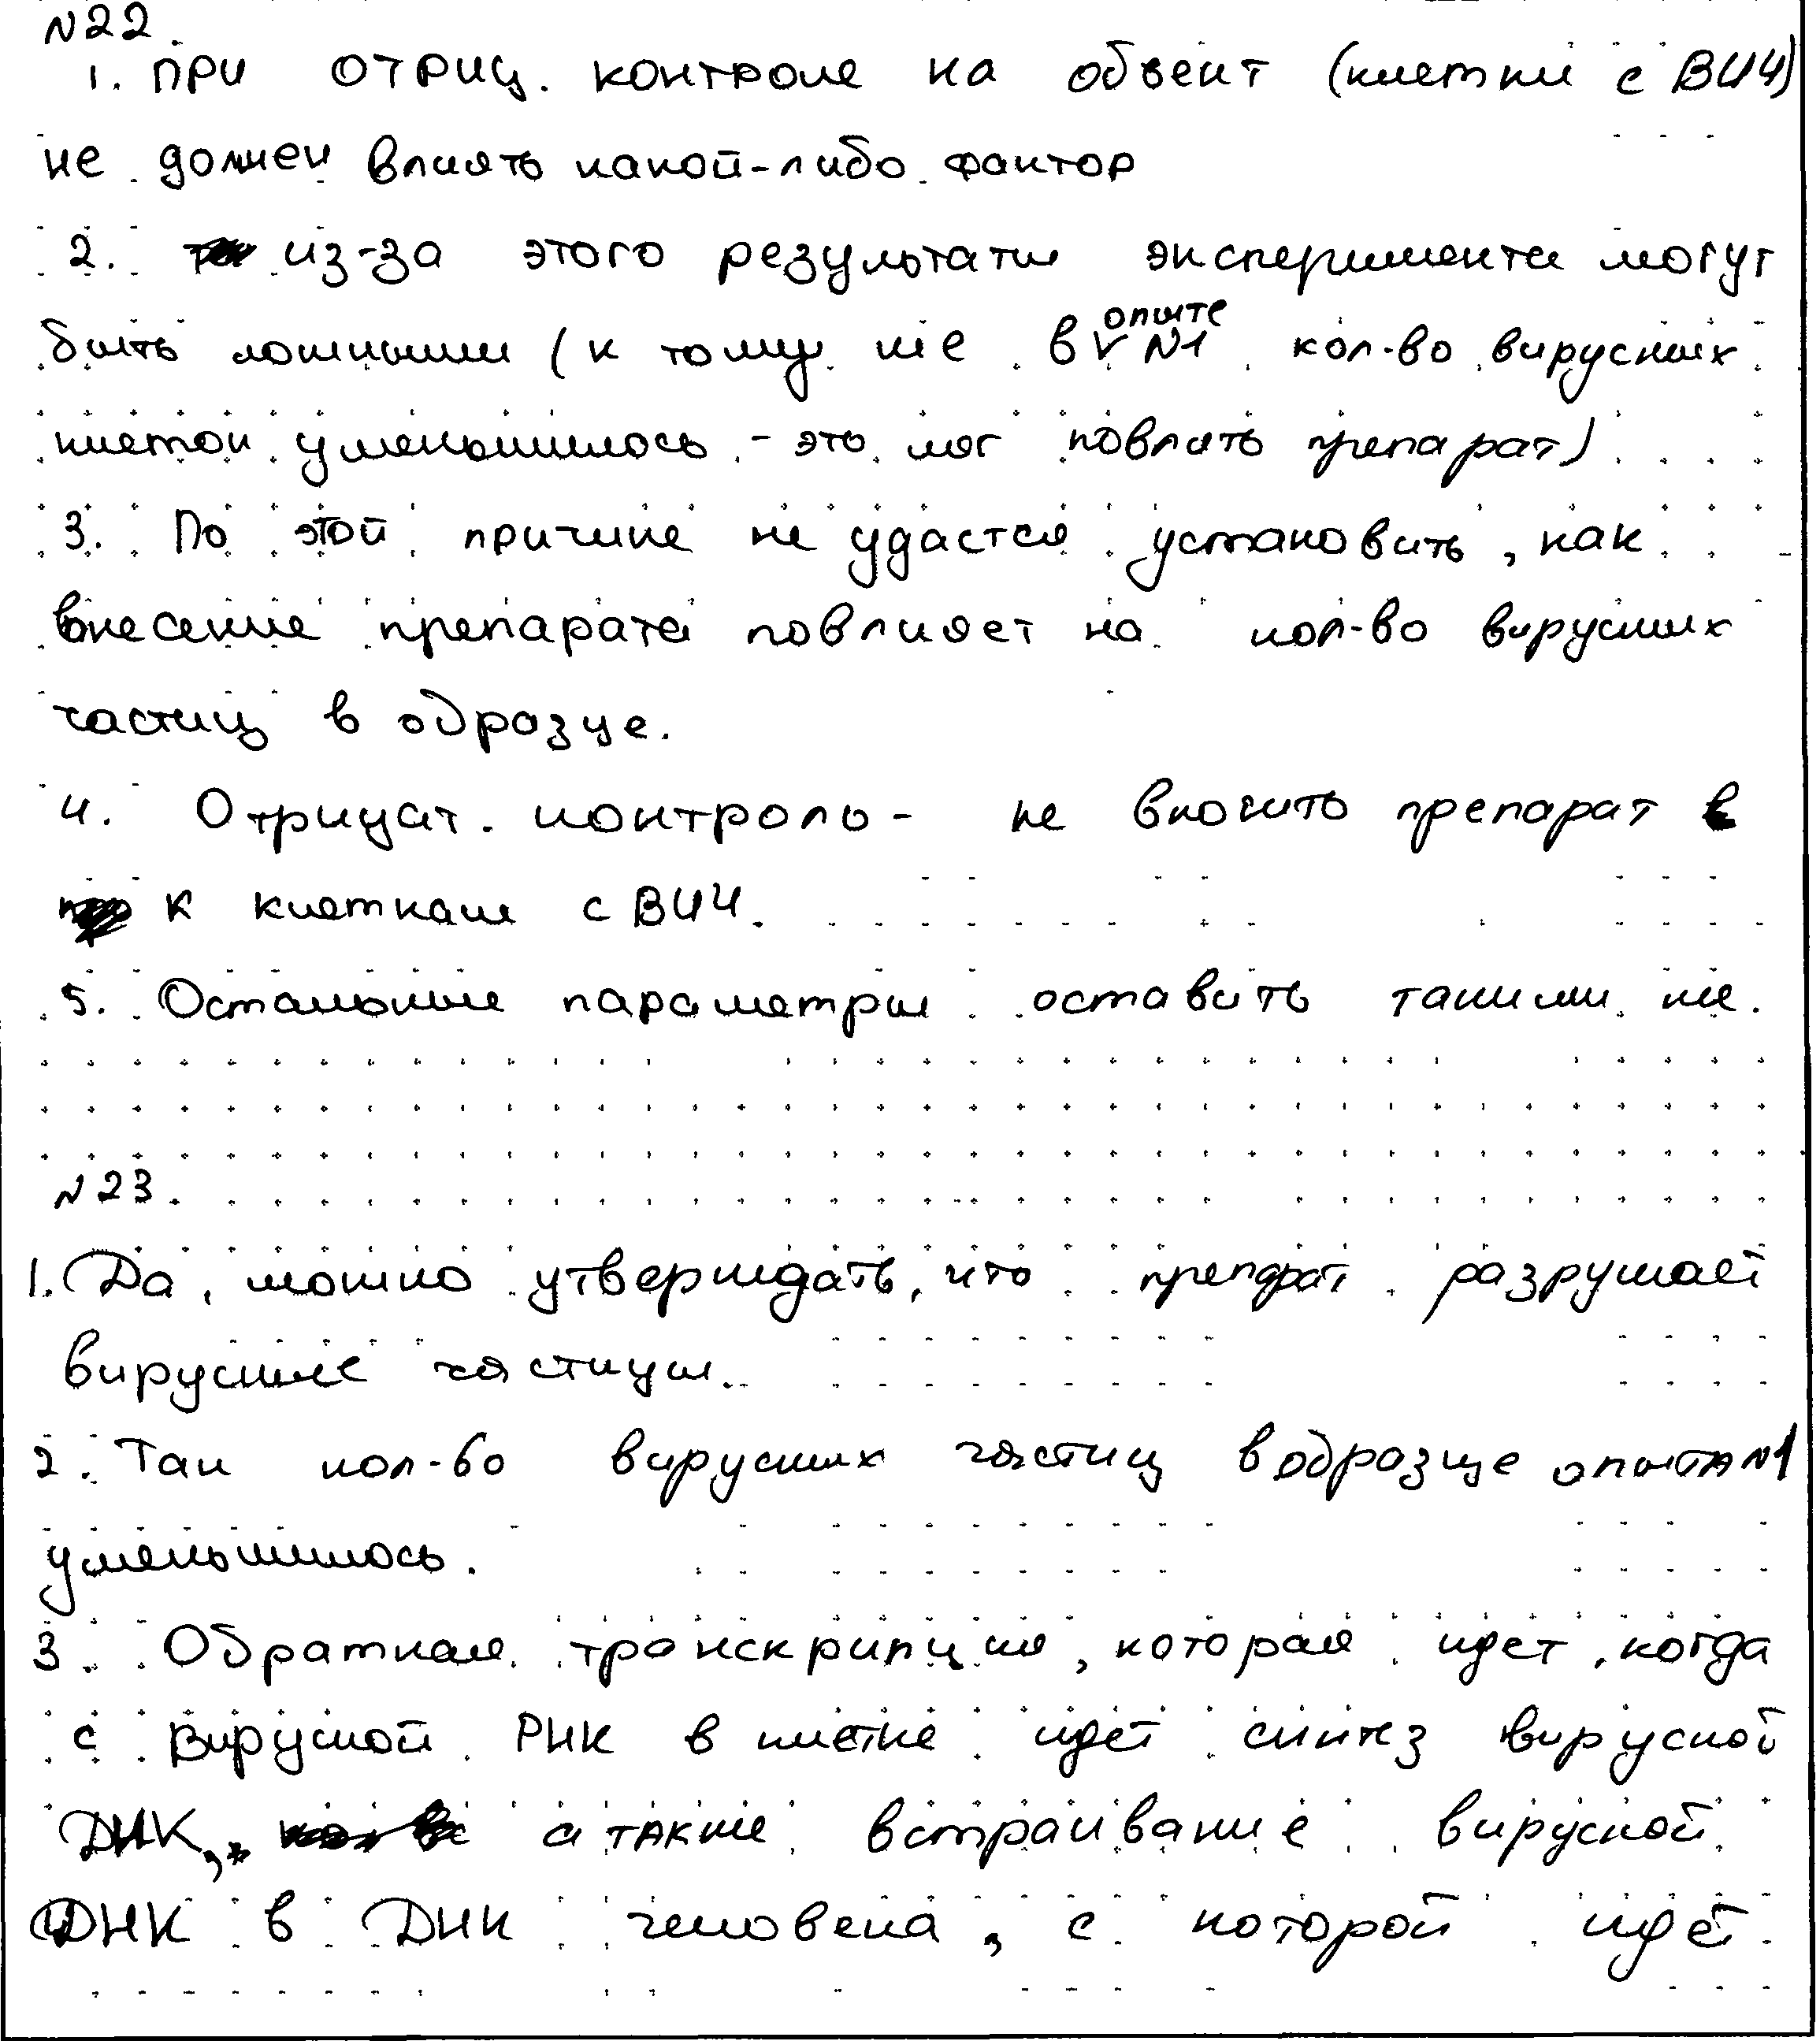 №22.
1. При отриц. контроле на объект (клетки с ВИЧ)
не должен влиять какой-либо фактор
2. из-за этого результаты эксперимента могут
быть ложными (к тому же в опыте №1 кол-во вирусных
клеток уменьшилось - это мог повлиять препарат)
3. По этой причине не удастся установить, как
внесение препарата повлияет на кол-во вирусных
частиц в образце.
4. Отрицат. контроль - не вносить препарат
к клеткам с ВИЧ.
5. Остальные параметры оставить такими же.
№23.
1. Да, можно утверждать, что препарат разрушает
вирусные частицы.
2. Так кол-во вирусных частиц в образце опыта №1
уменьшилось.
3. Обратная транскрипция, которая идет, когда
с вирусной РНК в клетке идет синтез вирусной
ДНК, а также встраивание вирусной
ДНК в ДНК человека, с которой идёт